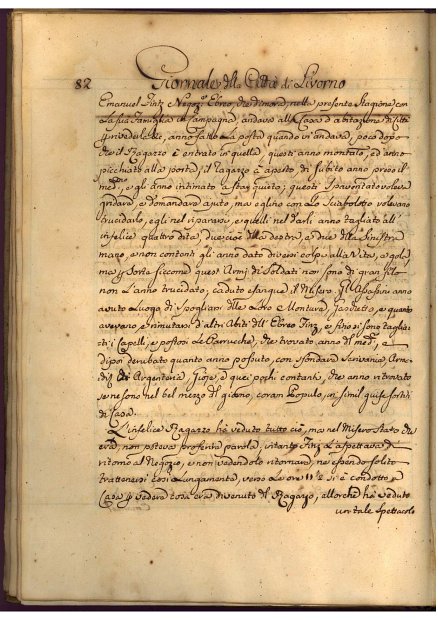 82 Giornale della Città di Livorno
Emanuel Finz Negoz.e Ebreo, che dimora, nella presente Stagione con
la sua Famiglia in Campagna, andava alla Casa d'abitazione di Città
anno fatto la posta quando vi andava, poco dopo
che il Ragazzo è entrato in quella, questi anno montato, ed anno
picchiato alla porta, il Ragazzo à aperto, di subito anno preso il
med.mo, e gli anno intimato a star quieto; questi spaventato voleva
gridare, e domandare ajuto, ma eglino con le Sciabolette volevano
trucidarlo, egli nel ripararsi, e quelli nel darli anno tagliato all'
infelice quattro dita, due della destra, e due della Sinistra
mano, e non contenti gli anno dato diversi colpi alla Vita, e gola
ma p Sorte siccome quest'Armi di Soldati non sono di gran filo
non l'anno trucidato; caduto esangue il Misero. Gl'Assassini anno
avuto luogo di spogliarsi delle Loro Monture, e quanto
avevano, e rimutarsi d'altri Abiti dell'Ebreo Finz, e sino si sono taglia-
ti i Capelli, e postosi le Parrucche, che trovato anno del med.mo, e
dipoi derubato quanto anno possuto, con sfondare Scrivanie,
di Argenteria, Gioje, e quei pochi contanti, che anno ritrovato
se ne sono nel bel mezzo del giorno, coram Populo, in simil guisa sortiti
di Casa.
L'infelice Ragazzo hà veduto tutto ciò, ma nel Misero Stato che
era, non poteva proferire parola, intanto Finz l'aspettava di
ritorno al Negozio, e non vedendolo ritornare, ne essendo solito
trattenersi così Lungamente, verso le ore 11 1/2 si è condotto a
Casa p vedere cosa era divenuto del Ragazzo, allorchè hà veduto
un tale spettacolo